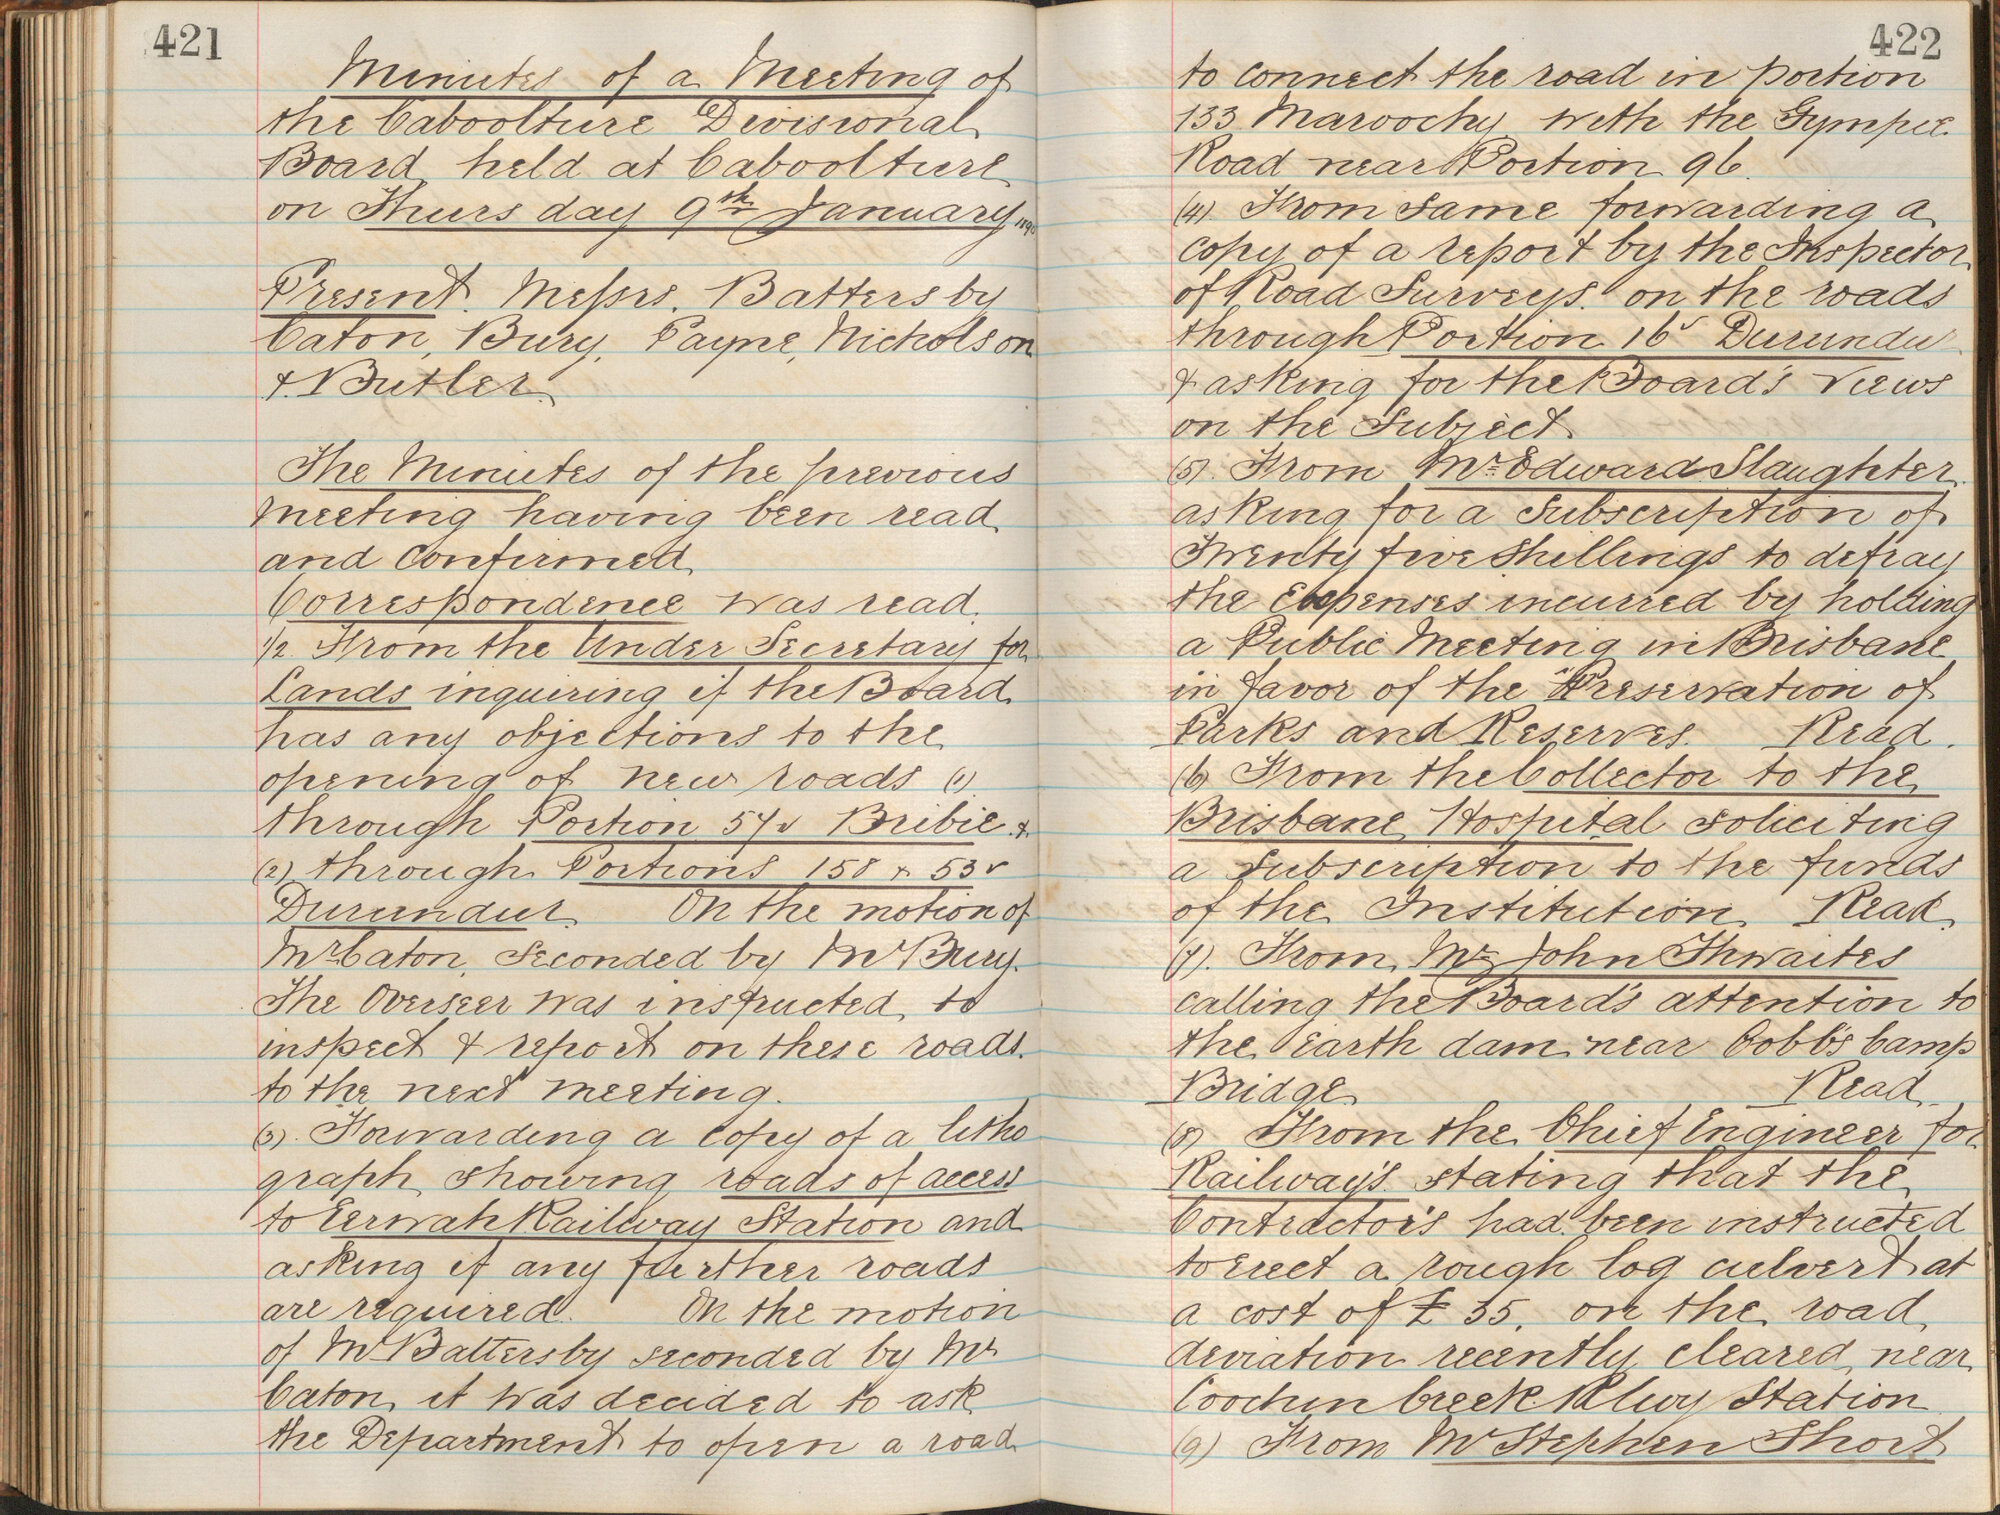 421
Minutes of a Meeting of
the Caboolture Divisional
Board held at Caboolture
on Thursday 9th January 1890
Present. Messrs. Battersby
Caton, Bury, Payne, Nicholson
& Butler.
The Minutes of the previous
Meeting having been read
and confirmed
Correspondence was read.
1/2 From the Under Secretary for
Lands inquiring if the Board
has any objections to the
opening of new roads (1)
through Portion 57v Bribie &
(2) through Portions 158 & 53v
Durundur. On the motion of
Mr Caton seconded by Mr Bury.
The Overseer was instructed to
inspect & report on these roads.
to the next meeting.
(3). Forwarding a copy of a litho
graph showing roads of access
to Eerwah Railway Station and
asking if any further roads
are required. On the motion
of Mr Battersby seconded by Mr
Caton it was decided to ask
the Department to open a road
422
to connect the road in portion
133 Maroochy with the Gympie
Road near Portion 96.
(4) From Same forwarding a
copy of a report by the Inspector
of Road Surveys on the roads
through Portion 16v Durundur
& asking for the Board's views
on the Subject
(5). From Mr Edward Slaughter.
asking for a Subscription of
Twenty five Shillings to defray
the Expenses incurred by holding
a Public Meeting in Brisbane
in favor of the Preservation of
Parks and Reserves. Read.
(6) From the Collector to the
Brisbane Hospital soliciting
a Subscription to the funds
of the Institution. Read.
(7). From Mr John Thwaites
calling the Board's attention to
the Earth dam near Cobb's Camp
Bridge Read.
(8) From the Chief Engineer for
Railway's stating that the
Contractor's had been instructed
to erect a rough log culvert at
a cost of £35. on the road
deviation recently cleared near
Coochin Creek Rlwy Station
(9) From Mr Stephen Short